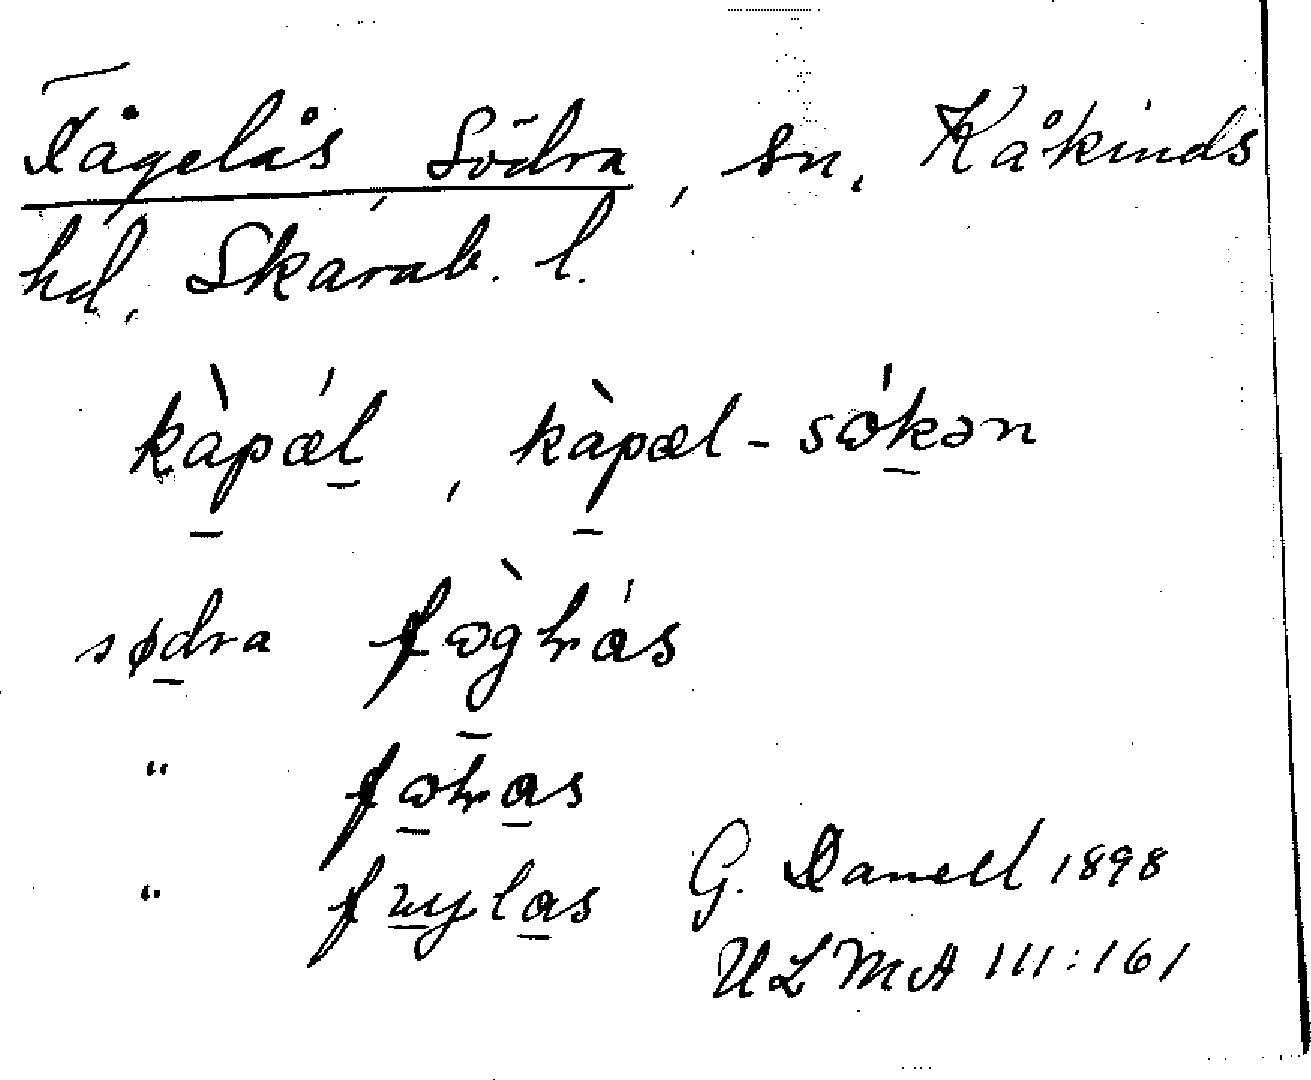 Fågelås, Södra, sn, Kåkinds
hd, Skarab. l.
kàpǽl, kàpæl-sókən
sødra fògɫrás
" fɷɫras
" fuylas G. Danell 1898
ULMA 111:161